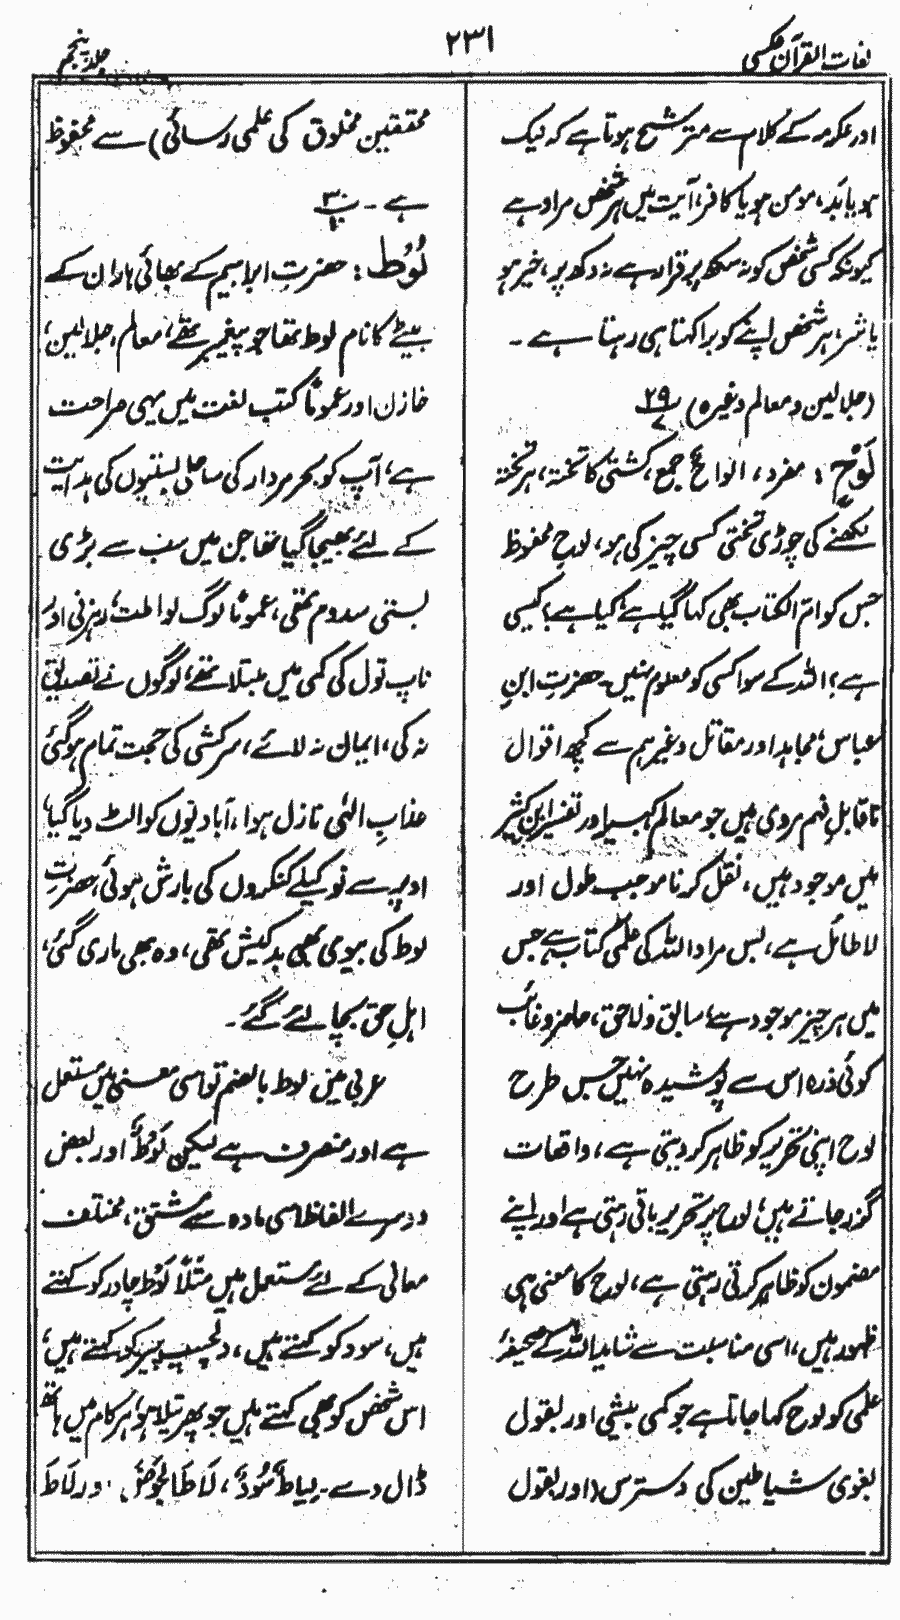 لغات القرآن عکسی
۲۳۱
جلد پنجم
اور عکرمہ کے کلام سے مترشح ہوتا ہے کہ نیک
ہو یا بد، مومن ہو یا کافر، آیت میں ہر شخص مراد ہے
کیونکہ کسی شخص کو نہ سکھ پر قرار ہے نہ دکھ پر، خیر ہو
یا شر، ہر شخص اپنے کو برا کہتا ہی رہتا ہے ۔
(جلالین و معالم وغیرہ) ۲۹
لَوْحٌ : مفرد، الواحٌ جمع، کشتی کا تختہ، ہر تختہ
لکھنے کی چوڑی تختی کسی چیز کی ہو، لوحِ محفوظ
جس کو امّ الکتاب بھی کہا گیا ہے، کیا ہے؟ کیسی
ہے؟ اللہ کے سوا کسی کو معلوم نہیں۔ حضرتِ ابنِ
عباس، مجاہد اور مقاتل وغیرہم سے کچھ اقوال
ناقابلِ فہم مروی ہیں جو معالم، کبیر اور تفسیر ابن کثیر
میں موجود ہیں، نقل کرنا موجب طول اور
لاطائل ہے، بس مراد اللہ کی علمی کتاب ہے جس
میں ہر چیز موجود ہے، سابق و لاحق، حاضر و غائب
کوئی ذرہ اس سے پوشیدہ نہیں جس طرح
لوح اپنی تحریر کو ظاہر کر دیتی ہے، واقعات
گذر جاتے ہیں، لوح پر تحریر باقی رہتی ہے اور اپنے
مضمون کو ظاہر کرتی رہتی ہے، لوح کا معنی ہی
ظہور ہیں، اسی مناسبت سے شاید اللہ کے صحیفۂ
علمی کو لوح کہا جاتا ہے جو کمی بیشی اور بقول
بغوی شیاطین کی دسترس (اور بقول
محققین مخلوق کی علمی رسائی) سے محفوظ
ہے ۔ پ۳۰
لُوْطٌ : حضرتِ ابراہیم کے بھائی ہاران کے
بیٹے کا نام لوط تھا جو پیغمبر تھے، معالم، جلالین،
خازن اور عموماً کتب لغت میں یہی صراحت
ہے، آپ کو بحر مردار کی ساحلی بستیوں کی ہدایت
کے لئے بھیجا گیا تھا جن میں سب سے بڑی
بستی سدوم تھی، عموماً لوگ لواطت، رہزنی اور
ناپ تول کی کمی میں مبتلا تھے، لوگوں نے تصدیق
نہ کی، ایمان نہ لائے، سرکشی کی حجت تمام ہو گئی
عذابِ الٰہی نازل ہوا، آبادیوں کو الٹ دیا گیا،
اوپر سے نوکیلے کنکروں کی بارش ہوئی، حضرت
لوط کی بیوی بھی بدکیش تھی، وہ بھی ماری گئی،
اہلِ حق بچا لئے گئے ۔
عربی میں لوط بالضم تو اسی معنی میں مستعمل
ہے اور منصرف ہے لیکن لَوْطٌ اور بعض
دوسرے الفاظ اسی مادہ سے مشتق، مختلف
معانی کے لئے مستعمل ہیں مثلاً لَوْط چادر کو کہتے
ہیں، سود کو کہتے ہیں، دلچسپ چیز کو کہتے ہیں،
اس شخص کو بھی کہتے ہیں جو پھرتیلا ہو، ہر کام میں ہاتھ
ڈال دے۔ لِیاطٌ سُودٌ، لَاطَ الحَوْضَ اور لَاطَ